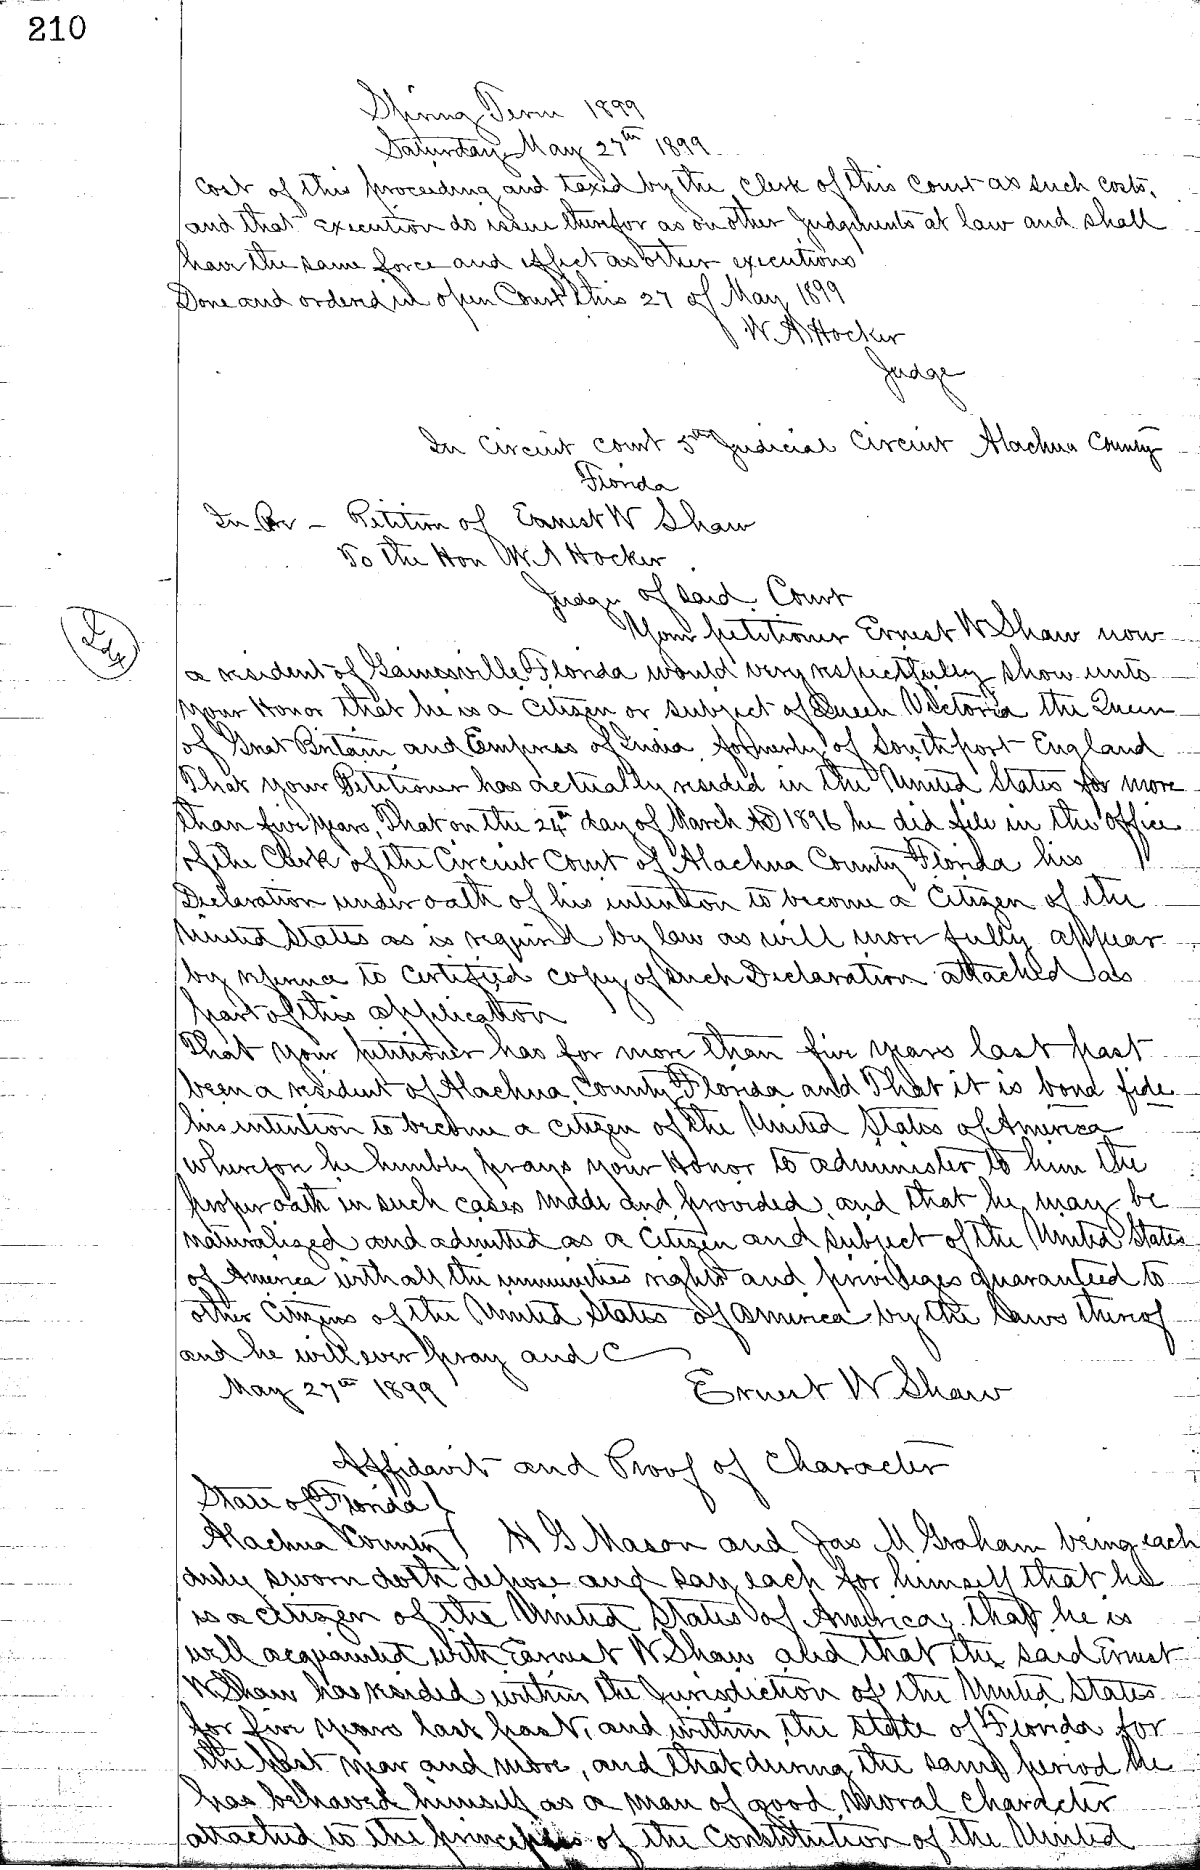 210
Spring Term 1899
Saturday May 27th 1899
cost of this proceeding and taxed by the Clerk of this Court as such costs,
and that execution do issue therefor as on other Judgments at law and shall
have the same force and effect as other executions
Done and ordered in open Court this 27 of May 1899
W. A. Hocker
Judge
In Circuit Court 5th Judicial Circuit Alachua County
Florida
In Re - Petition of Earnest W Shaw
To the Hon W A Hocker
Judge of said Court
Your petitioner Ernest W Shaw now
a resident of Gainesville Florida would very respectfully show unto
your Honor that he is a Citizen or subject of Queen Victoria the Queen
of Great Britain and Empress of India formerly of Southport England
That your Petitioner has actually resided in the United States for more
than five years, That on the 24th day of March AD 1896 he did file in the office
of the Clerk of the Circuit Court of Alachua County Florida his
Declaration under oath of his intention to become a Citizen of the
United States as is required by law as will more fully appear
by referenc to Certified copy of such Declaration attached as
part of this application
That your petitioner has for more than five years last past
been a resident of Alachua County Florida and That it is bona fide
his intention to become a citizen of the United States of America
wherefore he humbly prays your Honor to administer to him the
proper oath in such cases made and provided, and that he may be
naturalized and admitted as a Citizen and subject of the United States
of America with all the immunities rights and privileges guaranteed to
other Citizens of the United States of America by the laws thereof
and he will ever pray and C
May 27th 1899 Ernest W Shaw
Affidavit and Proof of Character
State of Florida
Alachua County H G Mason and Jas M Graham being each
duly sworn doth depose and say each for himself that he
is a citizen of the United States of America, that he is
well acquainted with Earnest W Shaw and that the said Ernest
W Shaw has resided within the Jurisdiction of the United States
for five years last past, and within the state of Florida for
the past year and more, and that during the same period he
has behaved himself as a man of good moral character
attached to the principles of the Constitution of the United